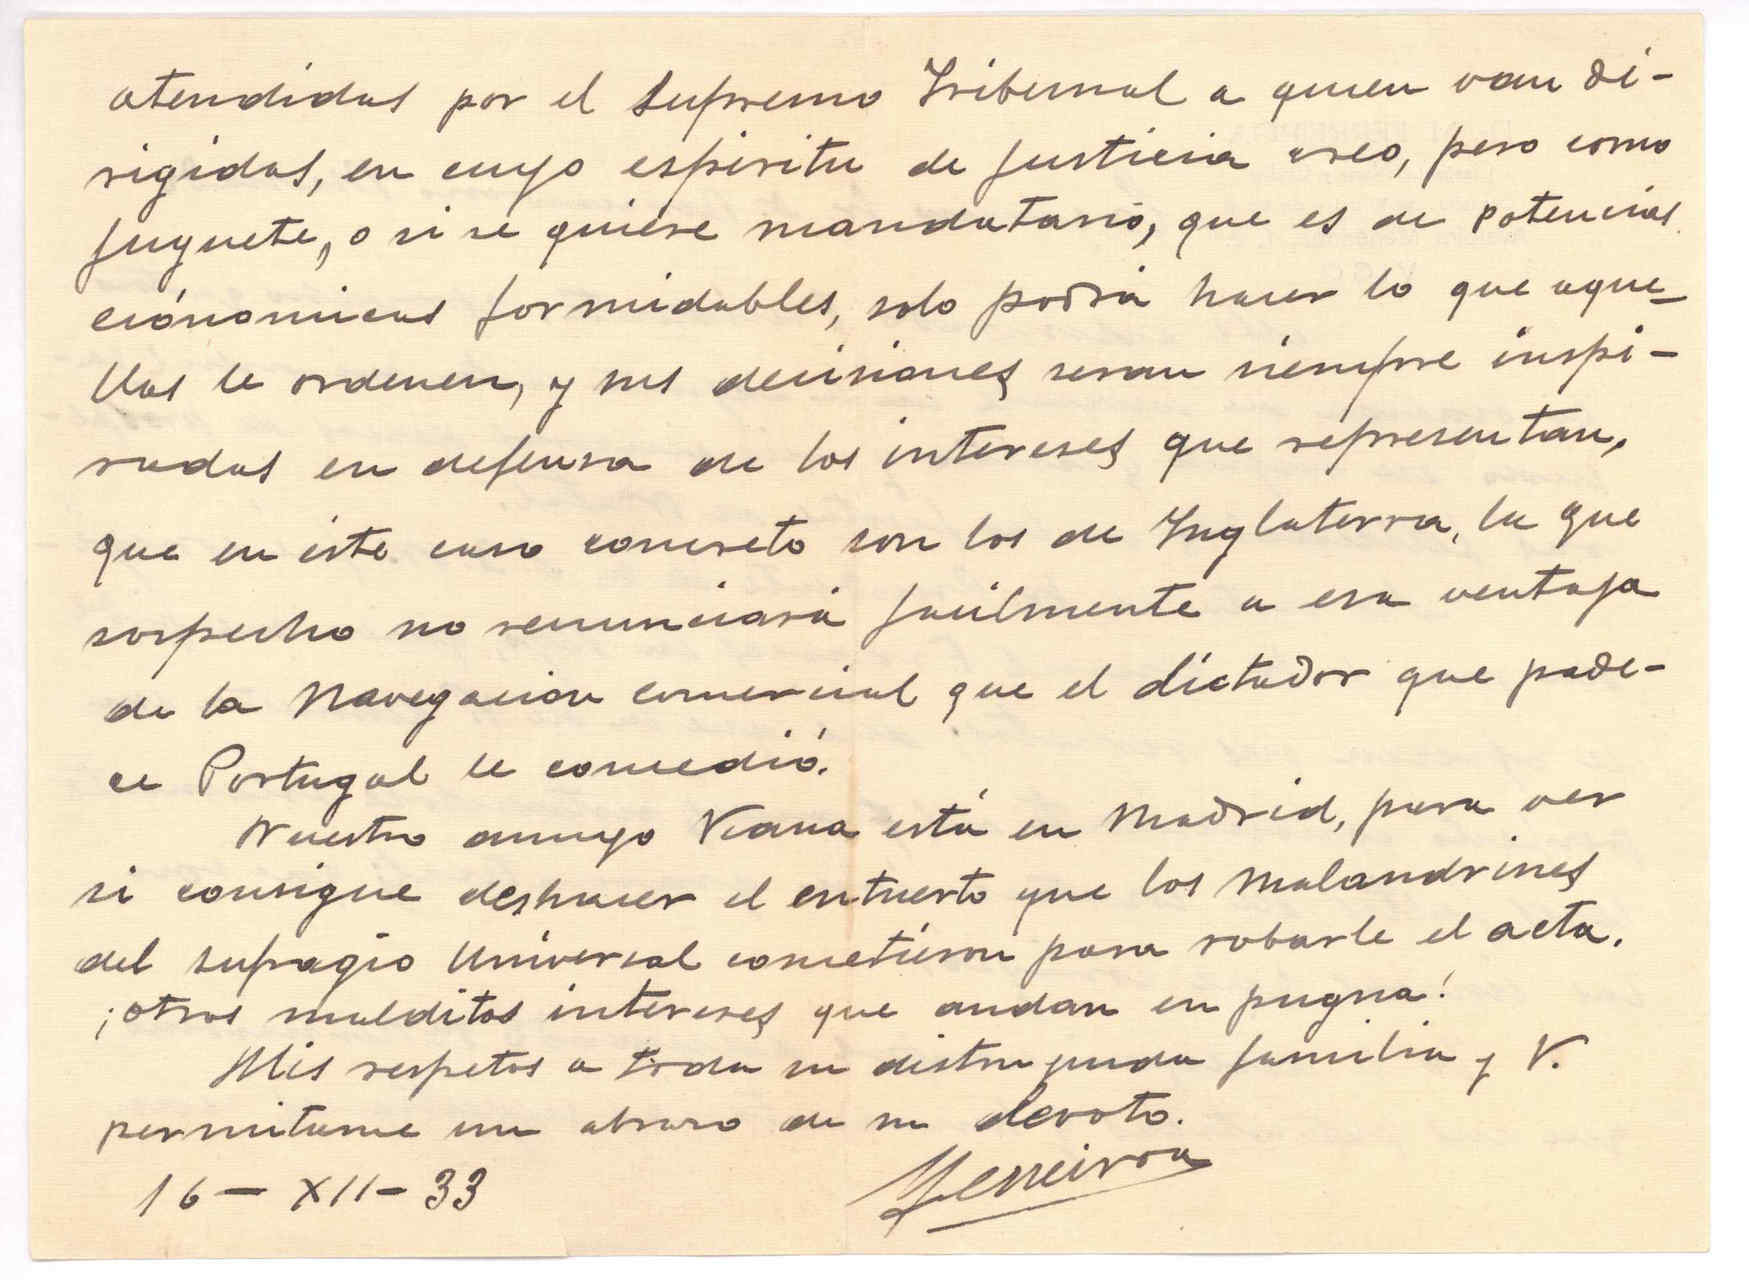 atendidas por el Supremo Tribunal a quien van di-
rigidas, en cuyo espiritu de justicia creo, pero como
juguete, o si se quiere mandatario, que es de potencias
ecónomicas formidables, solo podrá hacer lo que aque-
llas le ordenen, y sus decisiones seran siempre inspi-
radas en defensa de los intereses que representan,
que en éste caso concreto son los de Inglaterra, la que
sospecho no renunciará facilmente a esa ventaja
de la Navegacion comercial que el dictador que pade-
ce Portugal le concedió.
Nuestro amigo Viana está en Madrid, para ver
si consigue deshacer el entuerto que los malandrines
del sufragio Universal cometieron para robarle el acta.
¡otros malditos intereses que andan en pugna!
Mis respetos a toda su distinguida familia y V.
permitame un abrazo de su devoto.
16 - XII - 33